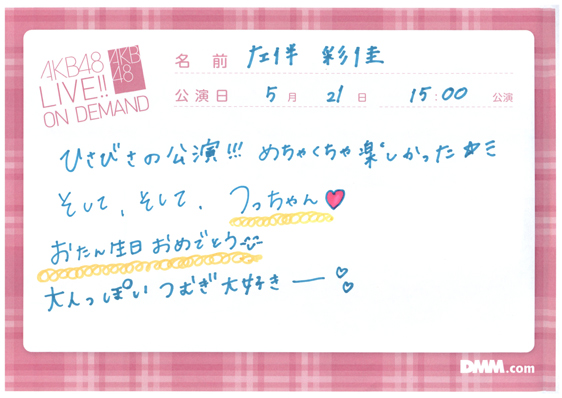 AKB48
LIVE!!
ON DEMAND
AKB
48
名前 左伴 彩佳
公演日 5月 21日 15:00 公演
ひさびさの公演!!! めちゃくちゃ楽しかった☆ミ
そして、そして、つっちゃん♥
おたん生日おめでとう
大人っぽい つむぎ大好きー
DMM.com